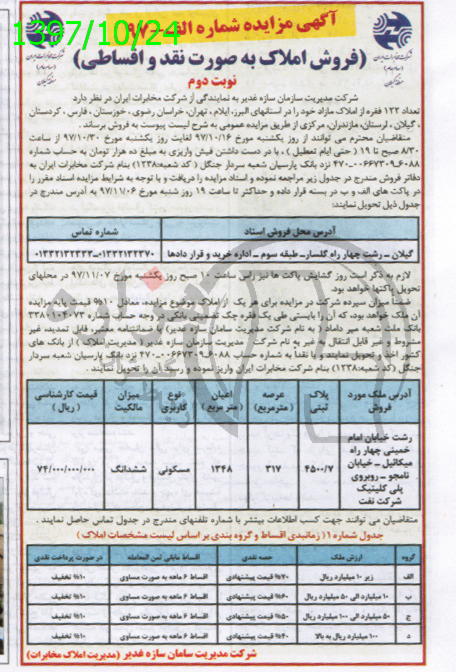 1397/10/24
آگهی مزایده شماره الف-97
(فروش املاک به صورت نقد و اقساطی)
نوبت دوم
شرکت مدیریت سازمان سازه غدیر به نمایندگی از شرکت مخابرات ایران در نظر دارد
تعداد ۱۲۲ فقره از املاک مازاد خود را در استانهای البرز، ایلام ، تهران، خراسان رضوی ، خوزستان ، فارس ، کردستان
، گیلان ، لرستان، مازندران، مرکزی از طریق مزایده عمومی به شرح لیست پیوست به فروش برساند .
متقاضیان محترم می توانند از روز یکشنبه مورخ ۹۷/۱۰/۱۶ لغایت روز یکشنبه مورخ ۹۷/۱۰/۳۰ از ساعت
۸/۳۰ صبح تا ۱۹ ( حتی ایام تعطیل ) ، با در دست داشتن فیش واریزی به مبلغ ده هزار تومان به حساب شماره
۴۷۰-۰۰۶۶۷۳۰۹-۶۰۸۸ نزد بانک پارسیان شعبه سردار جنگل ( کد شعبه:۱۲۳۸) بنام شرکت مخابرات ایران به
دفاتر فروش مندرج در جدول زیر مراجعه نموده و اسناد مزایده را دریافت و با توجه به شرایط مزایده اسناد مقرر را
در پاکت های الف و ب در بسته قرار داده و حداکثر تا ساعت ۱۹ روز شنبه مورخ ۹۷/۱۱/۰۶ به آدرس مندرج در
جدول ذیل تحویل نمایند:
آدرس محل فروش اسناد	شماره تماس
گیلان – رشت چهار راه گلسار– طبقه سوم – اداره خرید و قرار دادها	۰۱۳۳۲۱۳۲۳۷۰–۰۱۳۳۲۱۳۲۳۳۲
لازم به ذکر است روز گشایش پاکت ها نیز راس ساعت ۱۰ صبح روز یکشنبه مورخ ۹۷/۱۱/۰۷ در محلهای
تحویل پاکتها خواهد بود.
ضمنا میزان سپرده شرکت در مزایده برای هر یک از املاک موضوع مزایده، معادل ۱۰% قیمت پایه مزایده
آن ملک خواهد بود، که آن را بایستی طی یک فقره چک تضمینی بانکی در وجه حساب شماره ۳۳۸۰۱۰۴۰۷۳
بانک ملت شعبه میر داماد ( به نام شرکت مدیریت سامان سازه غدیر) یا ضمانتنامه معتبر، قابل تمدید، غیر
مشروط و غیر قابل انتقال به غیر به نام شرکت مدیریت سازمان سازه غدیر ( مدیریت املاک ) از بانک های
کشور اخذ و تحویل نمایند و یا نقدا به شماره حساب ۴۷۰-۰۰۶۶۷۳۰۹-۶۰۸۸ نزد بانک پارسیان شعبه سردار
جنگل (کد شعبه:۱۲۳۸) بنام شرکت مخابرات ایران واریز نموده و رسید آن را تحویل نمایند .
آدرس ملک مورد فروش	پلاک ثبتی	عرصه (مترمربع)	اعیان (متر مربع)	نوع کاربری	میزان مالکیت	قیمت کارشناسی (ریال)
رشت خیابان امام خمینی چهار راه میکائیل – خیابان نامجو – روبروی پلی کلینیک شرکت نفت	۴۵۰۰/۷	۳۱۷	۱۳۴۸	مسکونی	ششدانگ	۷۴/۰۰۰/۰۰۰/۰۰۰
متقاضیان می توانند جهت کسب اطلاعات بیشتر با شماره تلفنهای مندرج در جدول تماس حاصل نمایند .
جدول شماره ۱( زمانبندی اقساط و گروه بندی بر اساس لیست مشخصات املاک )
گروه	ارزش ملک	حصه نقدی	اقساط مابقی ثمن المعامله	در صورت پرداخت نقدی
الف	زیر ۱۰ میلیارد ریال	۷۰% قیمت پیشنهادی	اقساط ۶ ماهه به صورت مساوی	۱۰% تخفیف
ب	۱۰ میلیارد الی ۵۰ میلیارد ریال	۶۰% قیمت پیشنهادی	اقساط ۶ ماهه به صورت مساوی	۱۰% تخفیف
ج	۵۰ میلیارد الی ۱۰۰ میلیارد ریال	۵۰% قیمت پیشنهادی	اقساط ۶ ماهه به صورت مساوی	۱۰% تخفیف
د	۱۰۰ میلیارد ریال به بالا	۴۰% قیمت پیشنهادی	اقساط ۶ ماهه به صورت مساوی	۱۰% تخفیف
شرکت مدیریت سامان سازه غدیر (مدیریت املاک مخابرات)